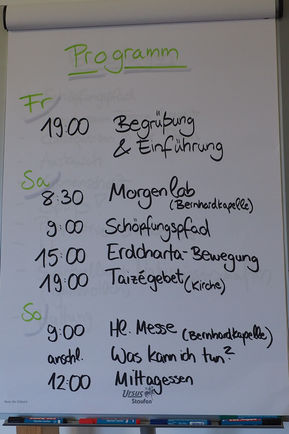 Programm
Fr
19.00 Begrüßung
& Einführung
Sa
8:30 Morgenlob
(Bernhardkapelle)
9:00 Schöpfungspfad
15:00 Erdcharta-Bewegung
19:00 Taizégebet (Kirche)
So
9:00 Hl. Messe (Bernhardkapelle)
anschl. Was kann ich tun?
12:00 Mittagessen
Ursus
Staufen